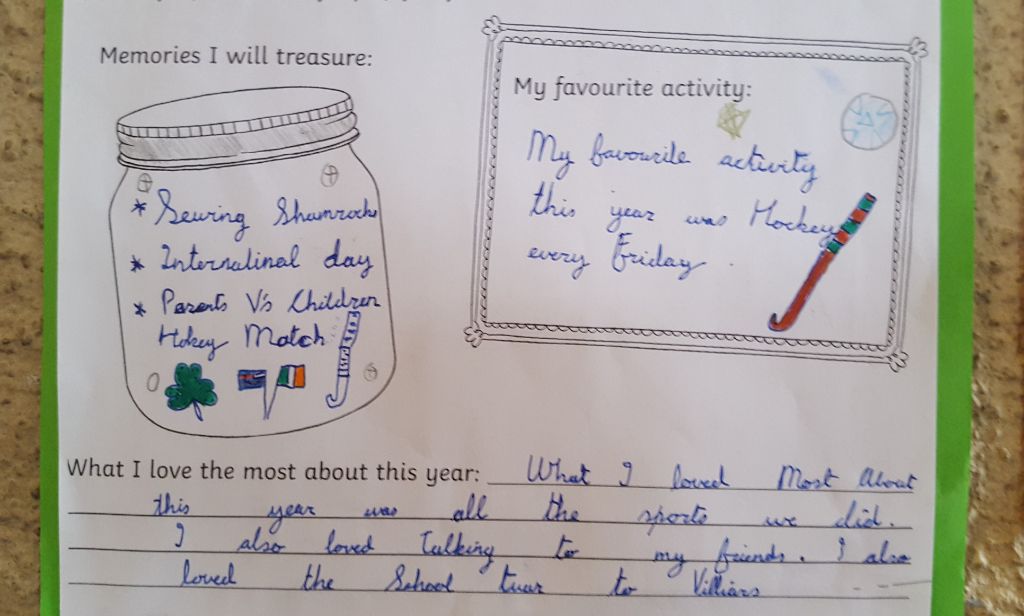 Memories I will treasure:
* Sewing Shamrocks
* Internatinal day
* Parents V's Children
Hokey Match
My favourite activity:
My favourite activity
this year was Hockey
every Friday.
What I love the most about this year: What I loved Most About
this year was all the sports we did.
I also loved Talking to my friends. I also
loved the School tuar to Villiars